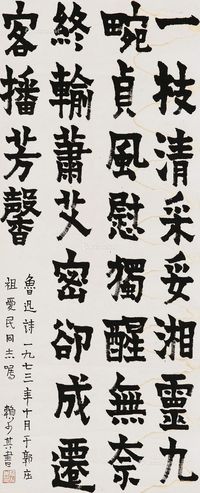 一枝清采妥湘靈九
畹貞風慰獨醒無奈
終輸蕭艾密卻成遷
客播芳馨
魯迅詩一九七三年十月于郭庄
祖愛民同志嘱 賴少其書